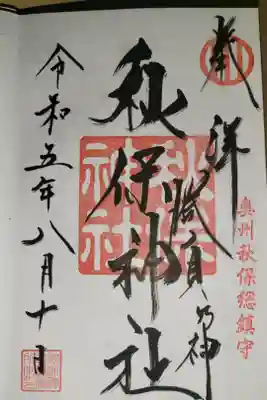 奥州秋保総鎮守
奉拝
勝負の神
秋保神社
令和五年八月十日